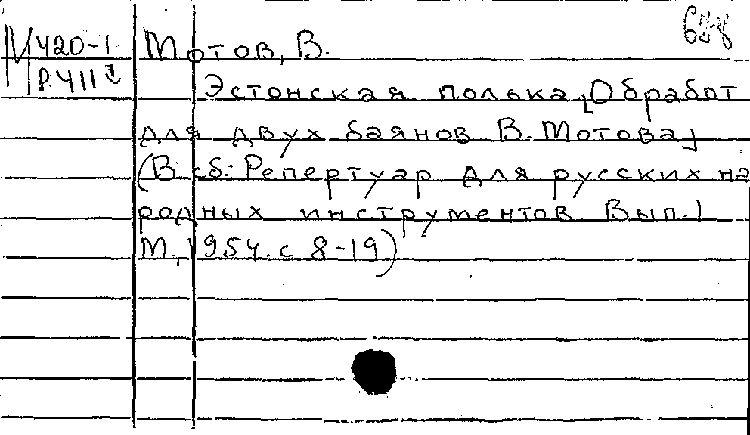 М 420-1 Мотов, В.
Р411
Эстонская полька [Обработ
для двух баянов В. Мотова]
(В сб: Репертуар для русских на
родных инструментов Вып. 1
М, 1954. с 8-19)